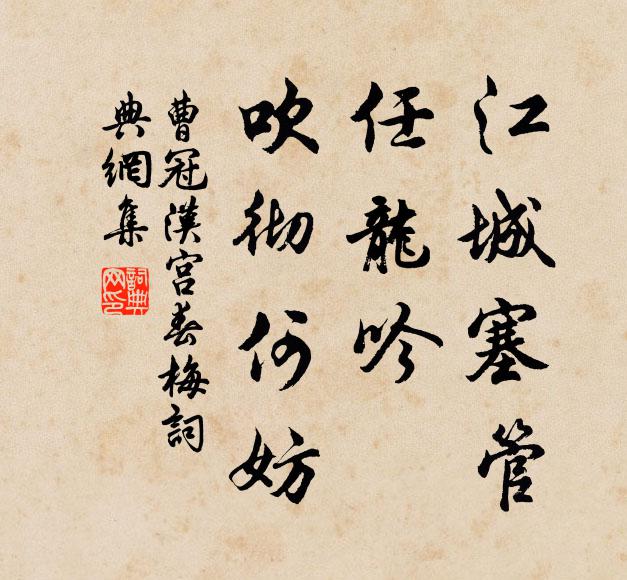 江城塞管
任龍吟
吹彻何妨
曹冠漢宮春梅詞
典網集
詞典
网印